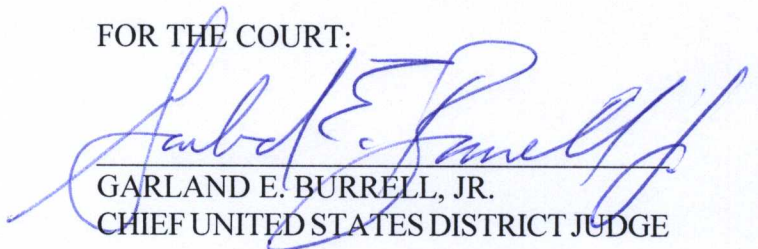 FOR THE COURT:
Garland E. Burrell Jr
GARLAND E. BURRELL, JR.
CHIEF UNITED STATES DISTRICT JUDGE